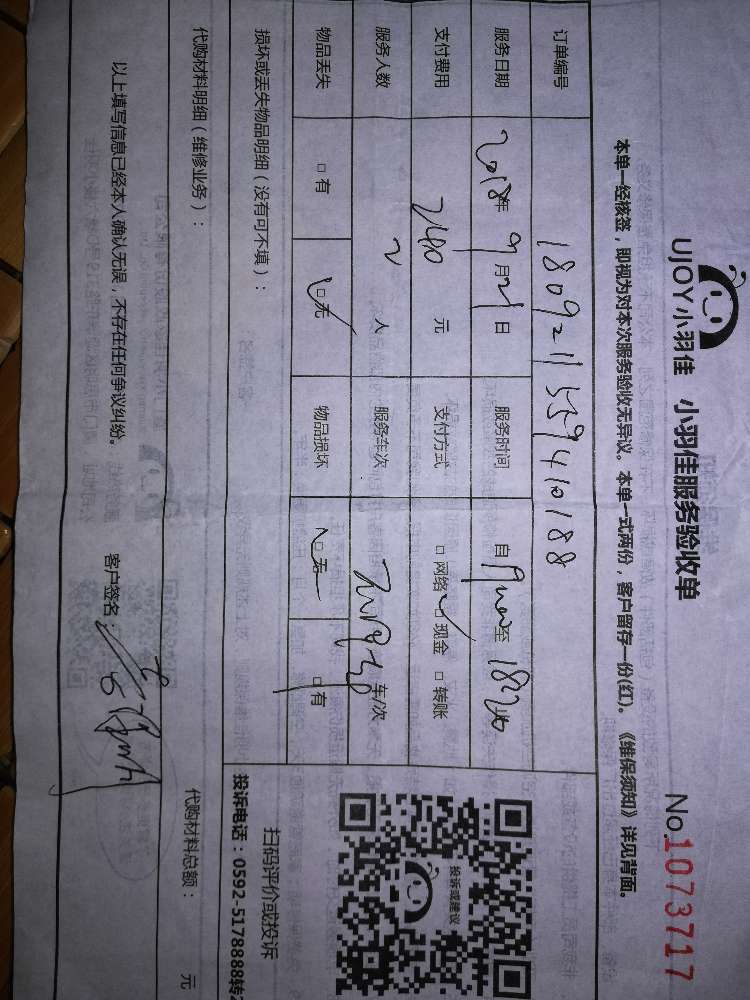 UJOY 小羽佳 小羽佳服务验收单 No.1073717
本单一经核签，即视为对本次服务验收无异议。本单一式两份，客户留存一份(红)。《维保须知》详见背面。
订单编号 1809211559410188
服务日期 2018年9月21日 服务时间 自 至
支付费用 2400 元 支付方式 □网络 □现金 □转账
服务人数 2 人 服务车次 车/次
物品丢失 □有 □无 物品损坏 □无 □有
损坏或丢失物品明细（没有可不填）：
投诉或建议
扫码评价或投诉
投诉电话：0592-5178888转2
代购材料明细（维修业务）： 代购材料总额： 元
以上填写信息已经本人确认无误，不存在任何争议纠纷。 客户签名：